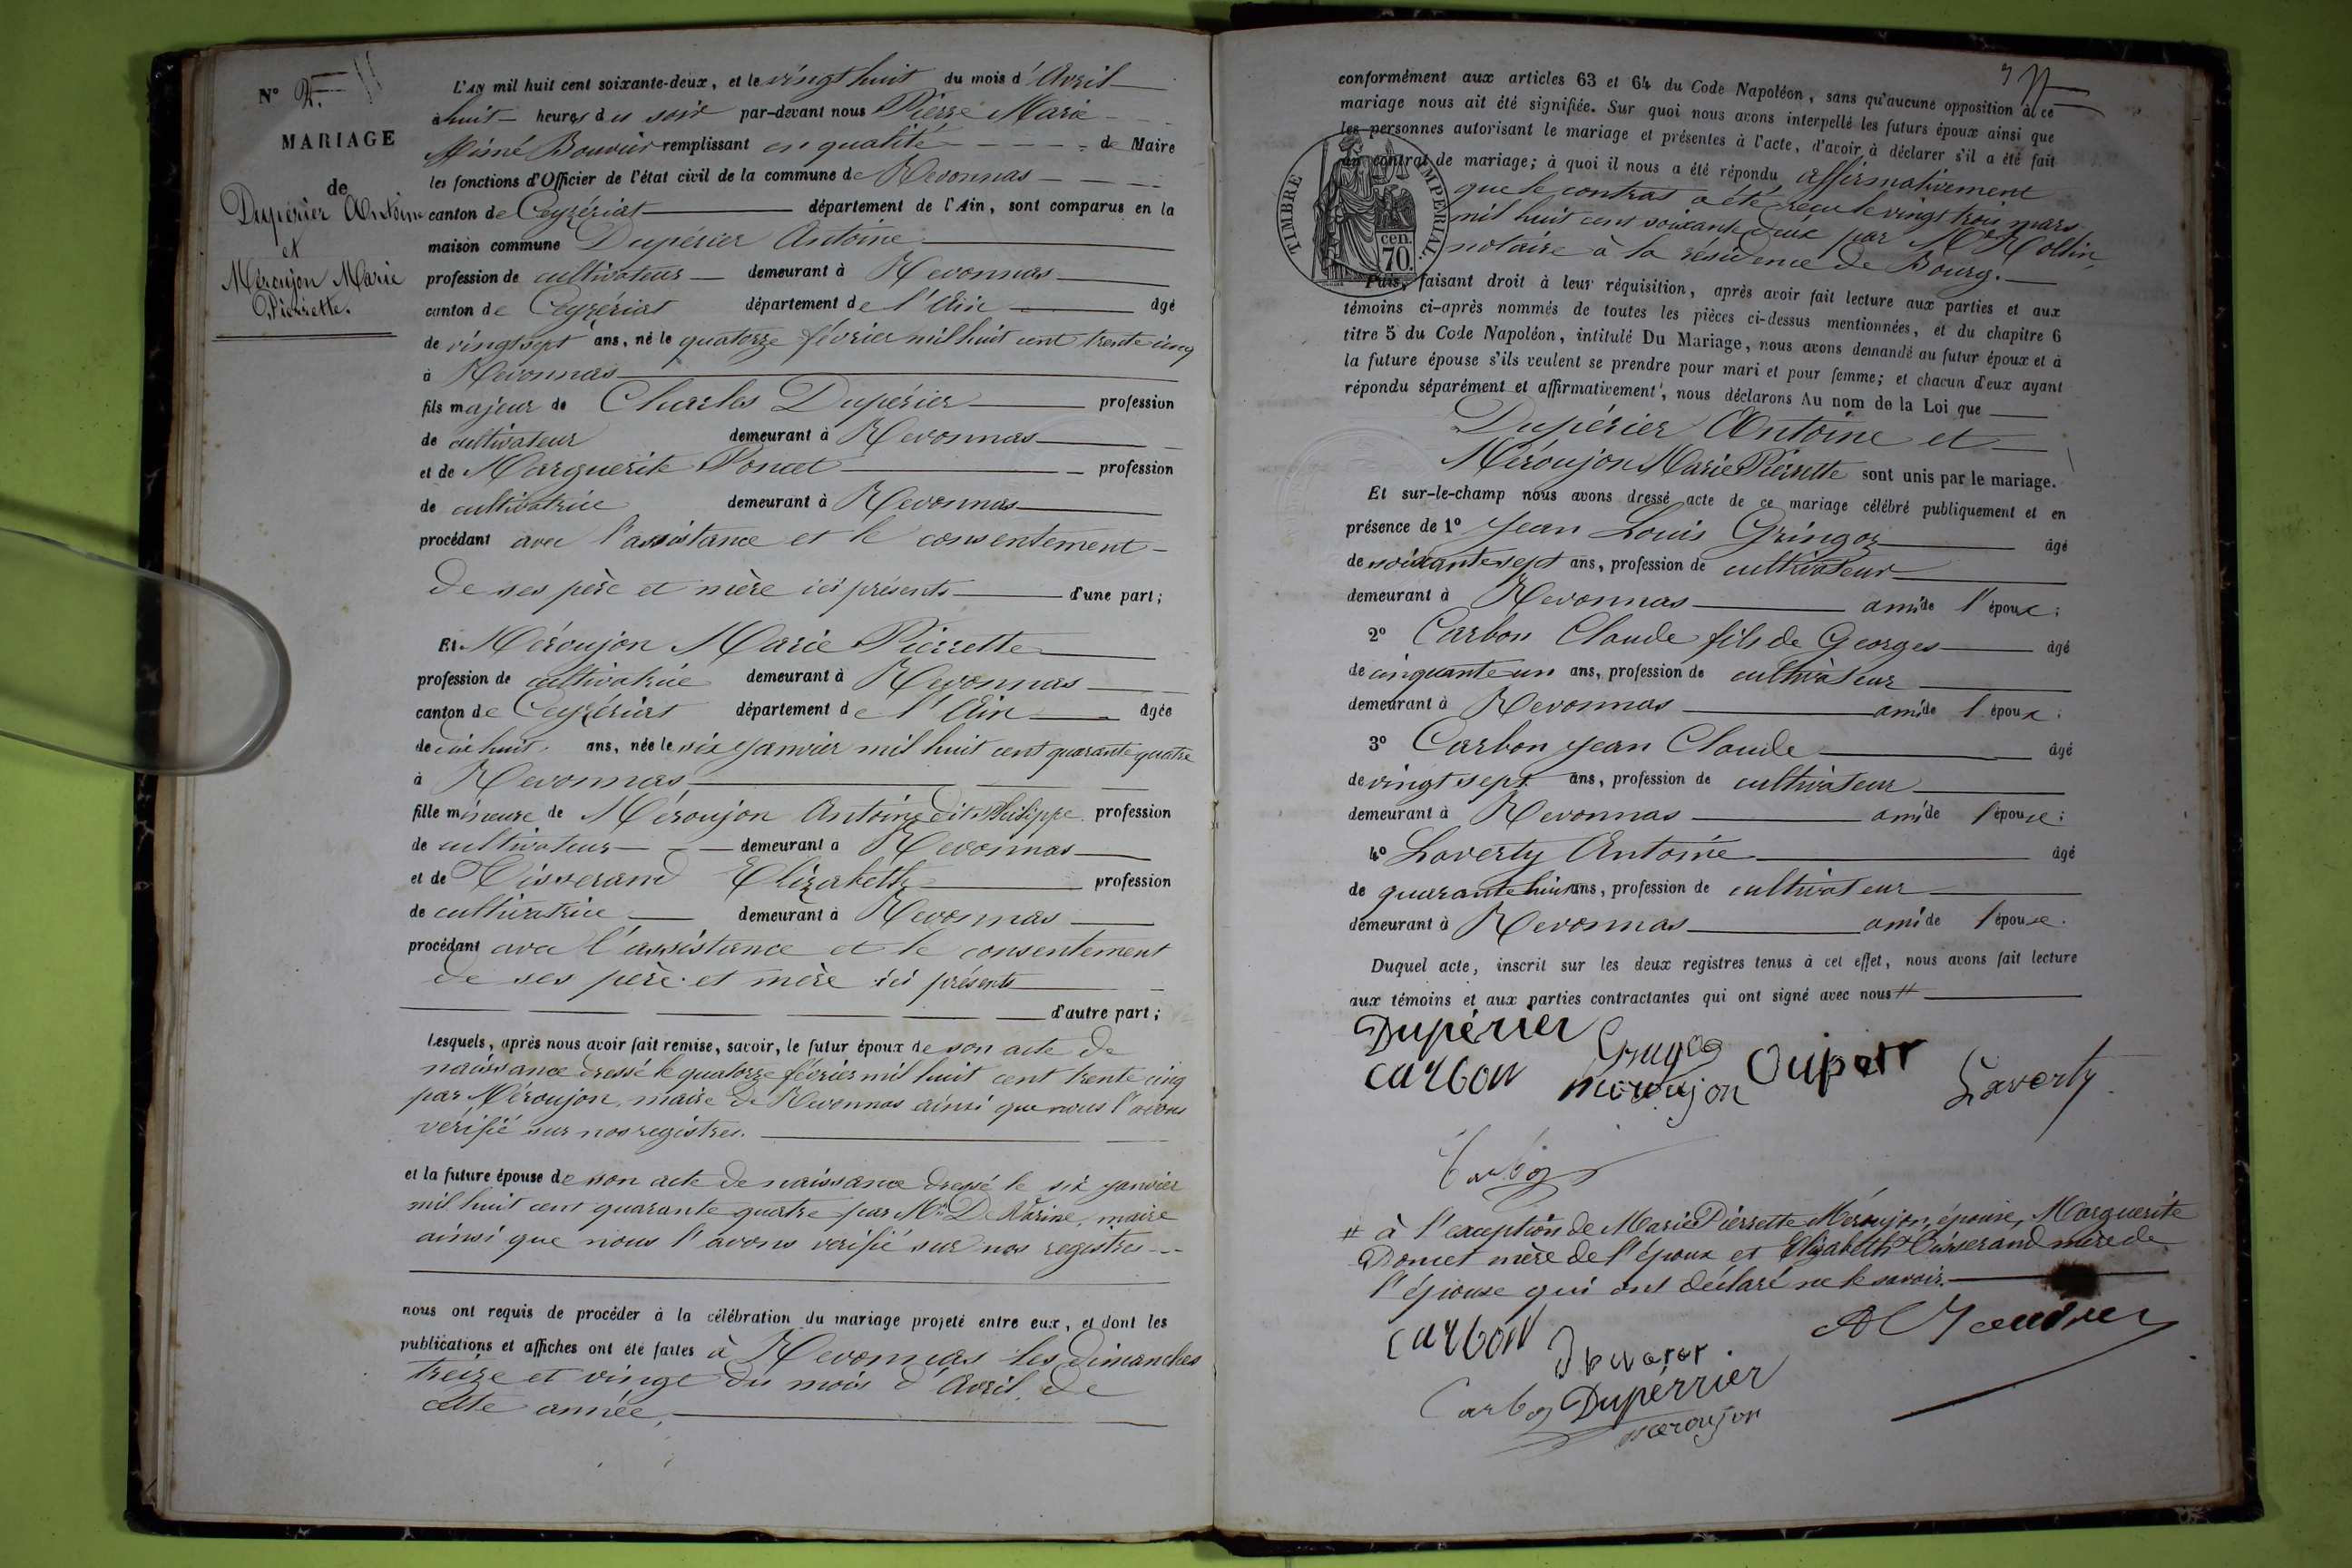 N° 2.
MARIAGE
de
Dupérier Antoine
et
Méroujon Marie
Pierrette.
L'an mil huit cent soixante-deux, et le vingt huit du mois d'Avril
à huit heures du soir par-devant nous Pierre Marie
Aimé Bouvier remplissant en qualité de Maire
les fonctions d'Officier de l'état civil de la commune de Revonnas
canton de Ceyzériat département de l'Ain, sont comparus en la
maison commune Dupérier Antoine
profession de cultivateur demeurant à Revonnas
canton de Ceyzériat département de l'Ain âgé
de vingt sept ans, né le quatorze février mil huit cent trente cinq
à Revonnas
fils majeur de Charles Dupérier profession
de cultivateur demeurant à Revonnas
et de Marguerite Poncet profession
de cultivatrice demeurant à Revonnas
procédant avec l'assistance et le consentement
de ses père et mère ici présents d'une part;
Et Méroujon Marie Pierrette
profession de cultivatrice demeurant à Revonnas
canton de Ceyzériat département de l'Ain âgée
de dix huit ans, née le six janvier mil huit cent quarante quatre
à Revonnas
fille mineure de Méroujon Antoine dit Philippe profession
de cultivateur demeurant à Revonnas
et de Tisserand Elizabeth profession
de cultivatrice demeurant à Revonnas
procédant avec l'assistance et le consentement
de ses père et mère ici présents
d'autre part;
Lesquels, après nous avoir fait remise, savoir, le futur époux de son acte de
naissance dressé le quatorze février mil huit cent trente cinq
par Méroujon, maire de Revonnas ainsi que nous l'avons
vérifié sur nos registres.
et la future épouse de son acte de naissance dressé le six janvier
mil huit cent quarante quatre par Mr , maire
ainsi que nous l'avons vérifié sur nos registres
nous ont requis de procéder à la célébration du mariage projeté entre eux, et dont les
publications et affiches ont été faites à Revonnas les dimanches
treize et vingt du mois d'Avril de
cette année.
conformément aux articles 63 et 64 du Code Napoléon, sans qu'aucune opposition à ce
mariage nous ait été signifiée. Sur quoi nous avons interpellé les futurs époux ainsi que
les personnes autorisant le mariage et présentes à l'acte, d'avoir à déclarer s'il a été fait
un contrat de mariage; à quoi il nous a été répondu affirmativement
que le contrat a été reçu le vingt trois mars
mil huit cent soixante deux par Me Rollin,
notaire à la résidence de Bourg.
TIMBRE IMPÉRIAL
cen.
70.
Puis, faisant droit à leur réquisition, après avoir fait lecture aux parties et aux
témoins ci-après nommés de toutes les pièces ci-dessus mentionnées, et du chapitre 6
titre 5 du Code Napoléon, intitulé Du Mariage, nous avons demandé au futur époux et à
la future épouse s'ils veulent se prendre pour mari et pour femme; et chacun d'eux ayant
répondu séparément et affirmativement, nous déclarons Au nom de la Loi que
Dupérier Antoine et
Méroujon Marie Pierrette sont unis par le mariage.
Et sur-le-champ nous avons dressé acte de ce mariage célébré publiquement et en
présence de 1° Jean Louis Gringoz âgé
de soixante sept ans, profession de cultivateur
demeurant à Revonnas ami de l'époux;
2° Carbon Claude fils de Georges âgé
de cinquante un ans, profession de cultivateur
demeurant à Revonnas ami de l'époux;
3° Carbon Jean Claude âgé
de vingt sept ans, profession de cultivateur
demeurant à Revonnas ami de l'épouse;
4° Laverty Antoine âgé
de quarante huit ans, profession de cultivateur
demeurant à Revonnas ami de l'épouse.
Duquel acte, inscrit sur les deux registres tenus à cet effet, nous avons fait lecture
aux témoins et aux parties contractantes qui ont signé avec nous #
Dupérier
carbon meroujon Laverty
# à l'exception de Marie Pierrette Méroujon, épouse, Marguerite
Poncet mère de l'époux et Elizabeth Tisserand mère de
l'épouse qui ont déclaré ne le savoir.
carbon
Dupérrier
meroujon